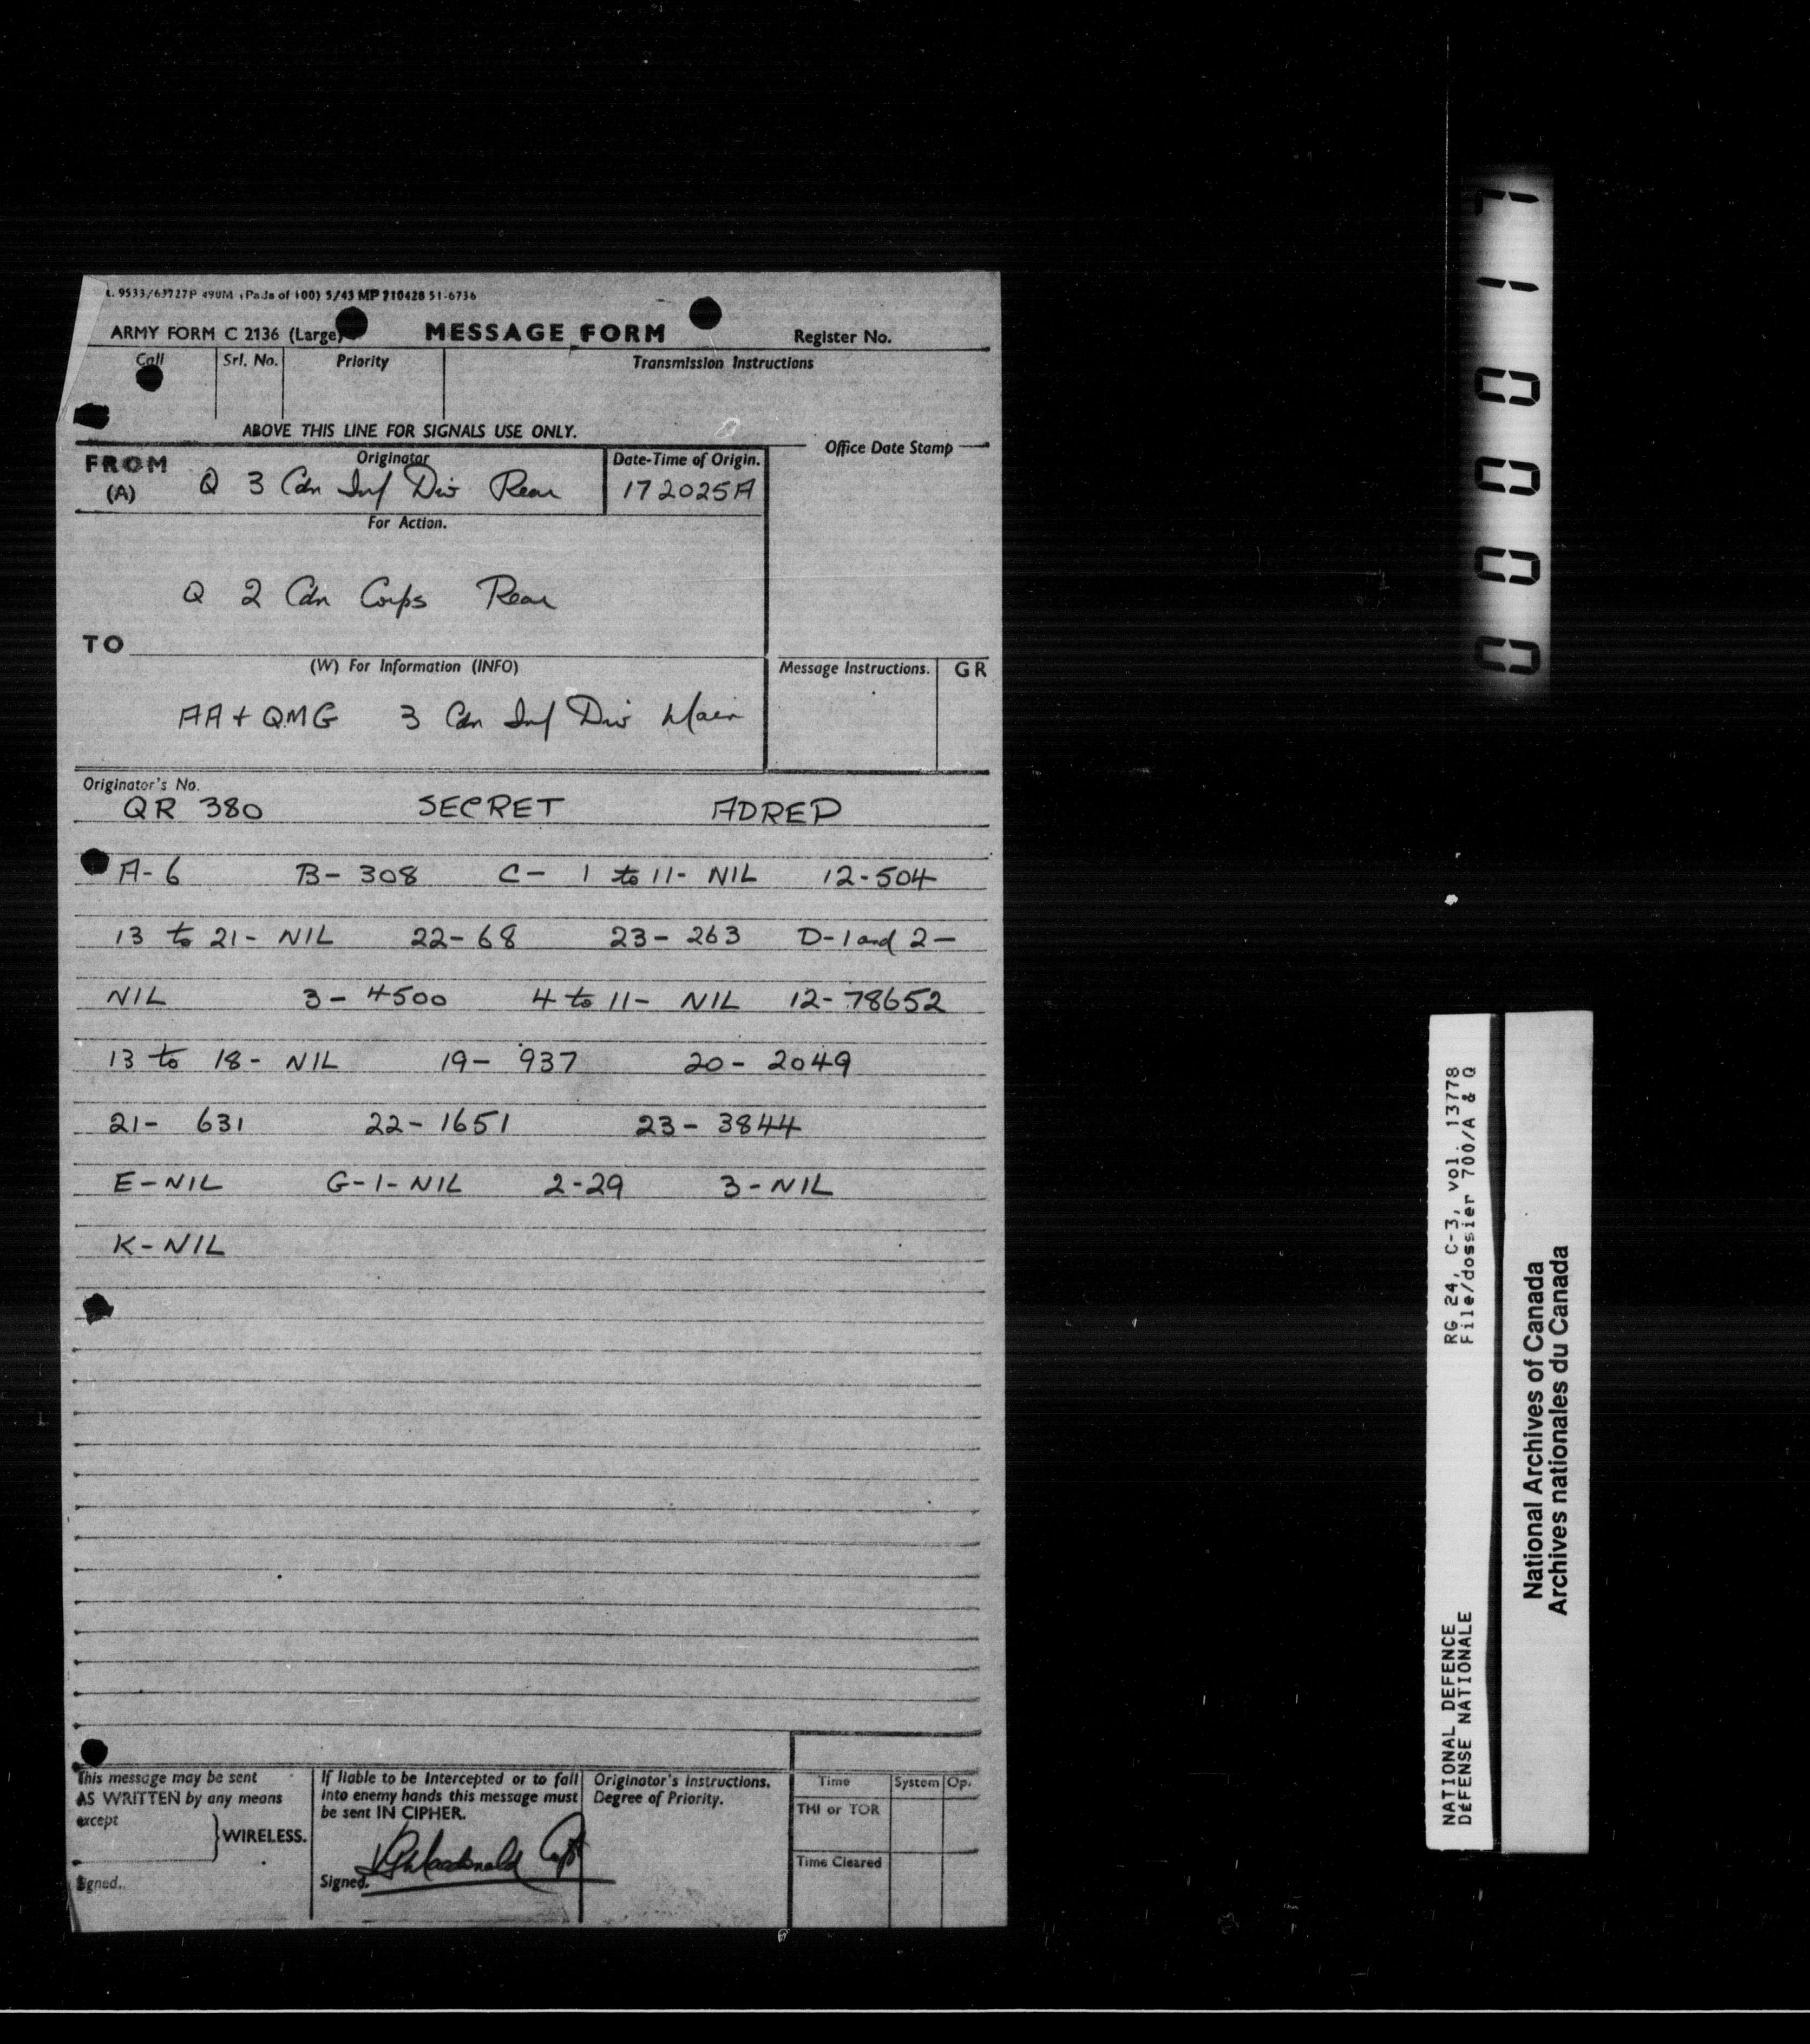 9533/63727P 490M (Pads of 100) 5/43 MP 210428 51-6736
ARMY FORM C 2136 (Large) MESSAGE FORM Register No.
Call Srl. No. Priority Transmission Instructions
ABOVE THIS LINE FOR SIGNALS USE ONLY.
Office Date Stamp
FROM (A) Originator Date-Time of Origin.
Q 3 Cdn Inf Div Rear 172025A
For Action.
Q 2 Cdn Corps Rear
TO
(W) For Information (INFO) Message Instructions. GR
AA + QMG 3 Cdn Inf Div Main
Originator's No.
QR 380 SECRET ADREP
A-6 B- 308 C- 1 to 11- NIL 12-504
13 to 21- NIL 22-68 23- 263 D-1 and 2-
NIL 3- 4500 4 to 11- NIL 12-78652
13 to 18- NIL 19- 937 20- 2049
21- 631 22-1651 23- 3844
E-NIL G-1-NIL 2-29 3-NIL
K-NIL
This message may be sent
AS WRITTEN by any means
except
WIRELESS.
Signed.
If liable to be intercepted or to fall
into enemy hands this message must
be sent IN CIPHER.
Signed. Macdonald Capt
Originator's Instructions.
Degree of Priority.
Time System Op.
THI or TOR
Time Cleared
000017
RG 24, C-3, vol. 13778
File/dossier 700/A & Q
NATIONAL DEFENCE
DÉFENSE NATIONALE
National Archives of Canada
Archives nationales du Canada